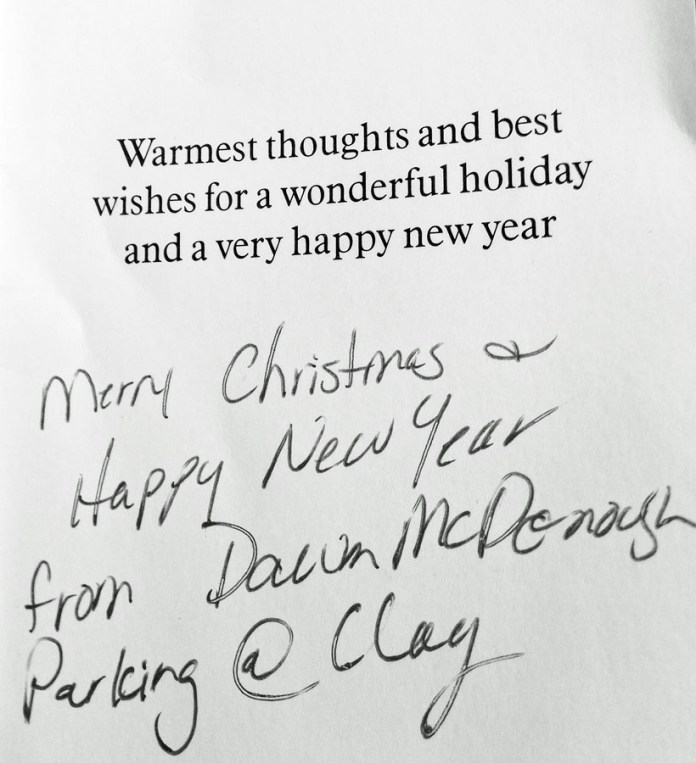 Warmest thoughts and best
wishes for a wonderful holiday
and a very happy new year
Merry Christmas &
Happy New Year
from Dawn McDonough
Parking @ Clay